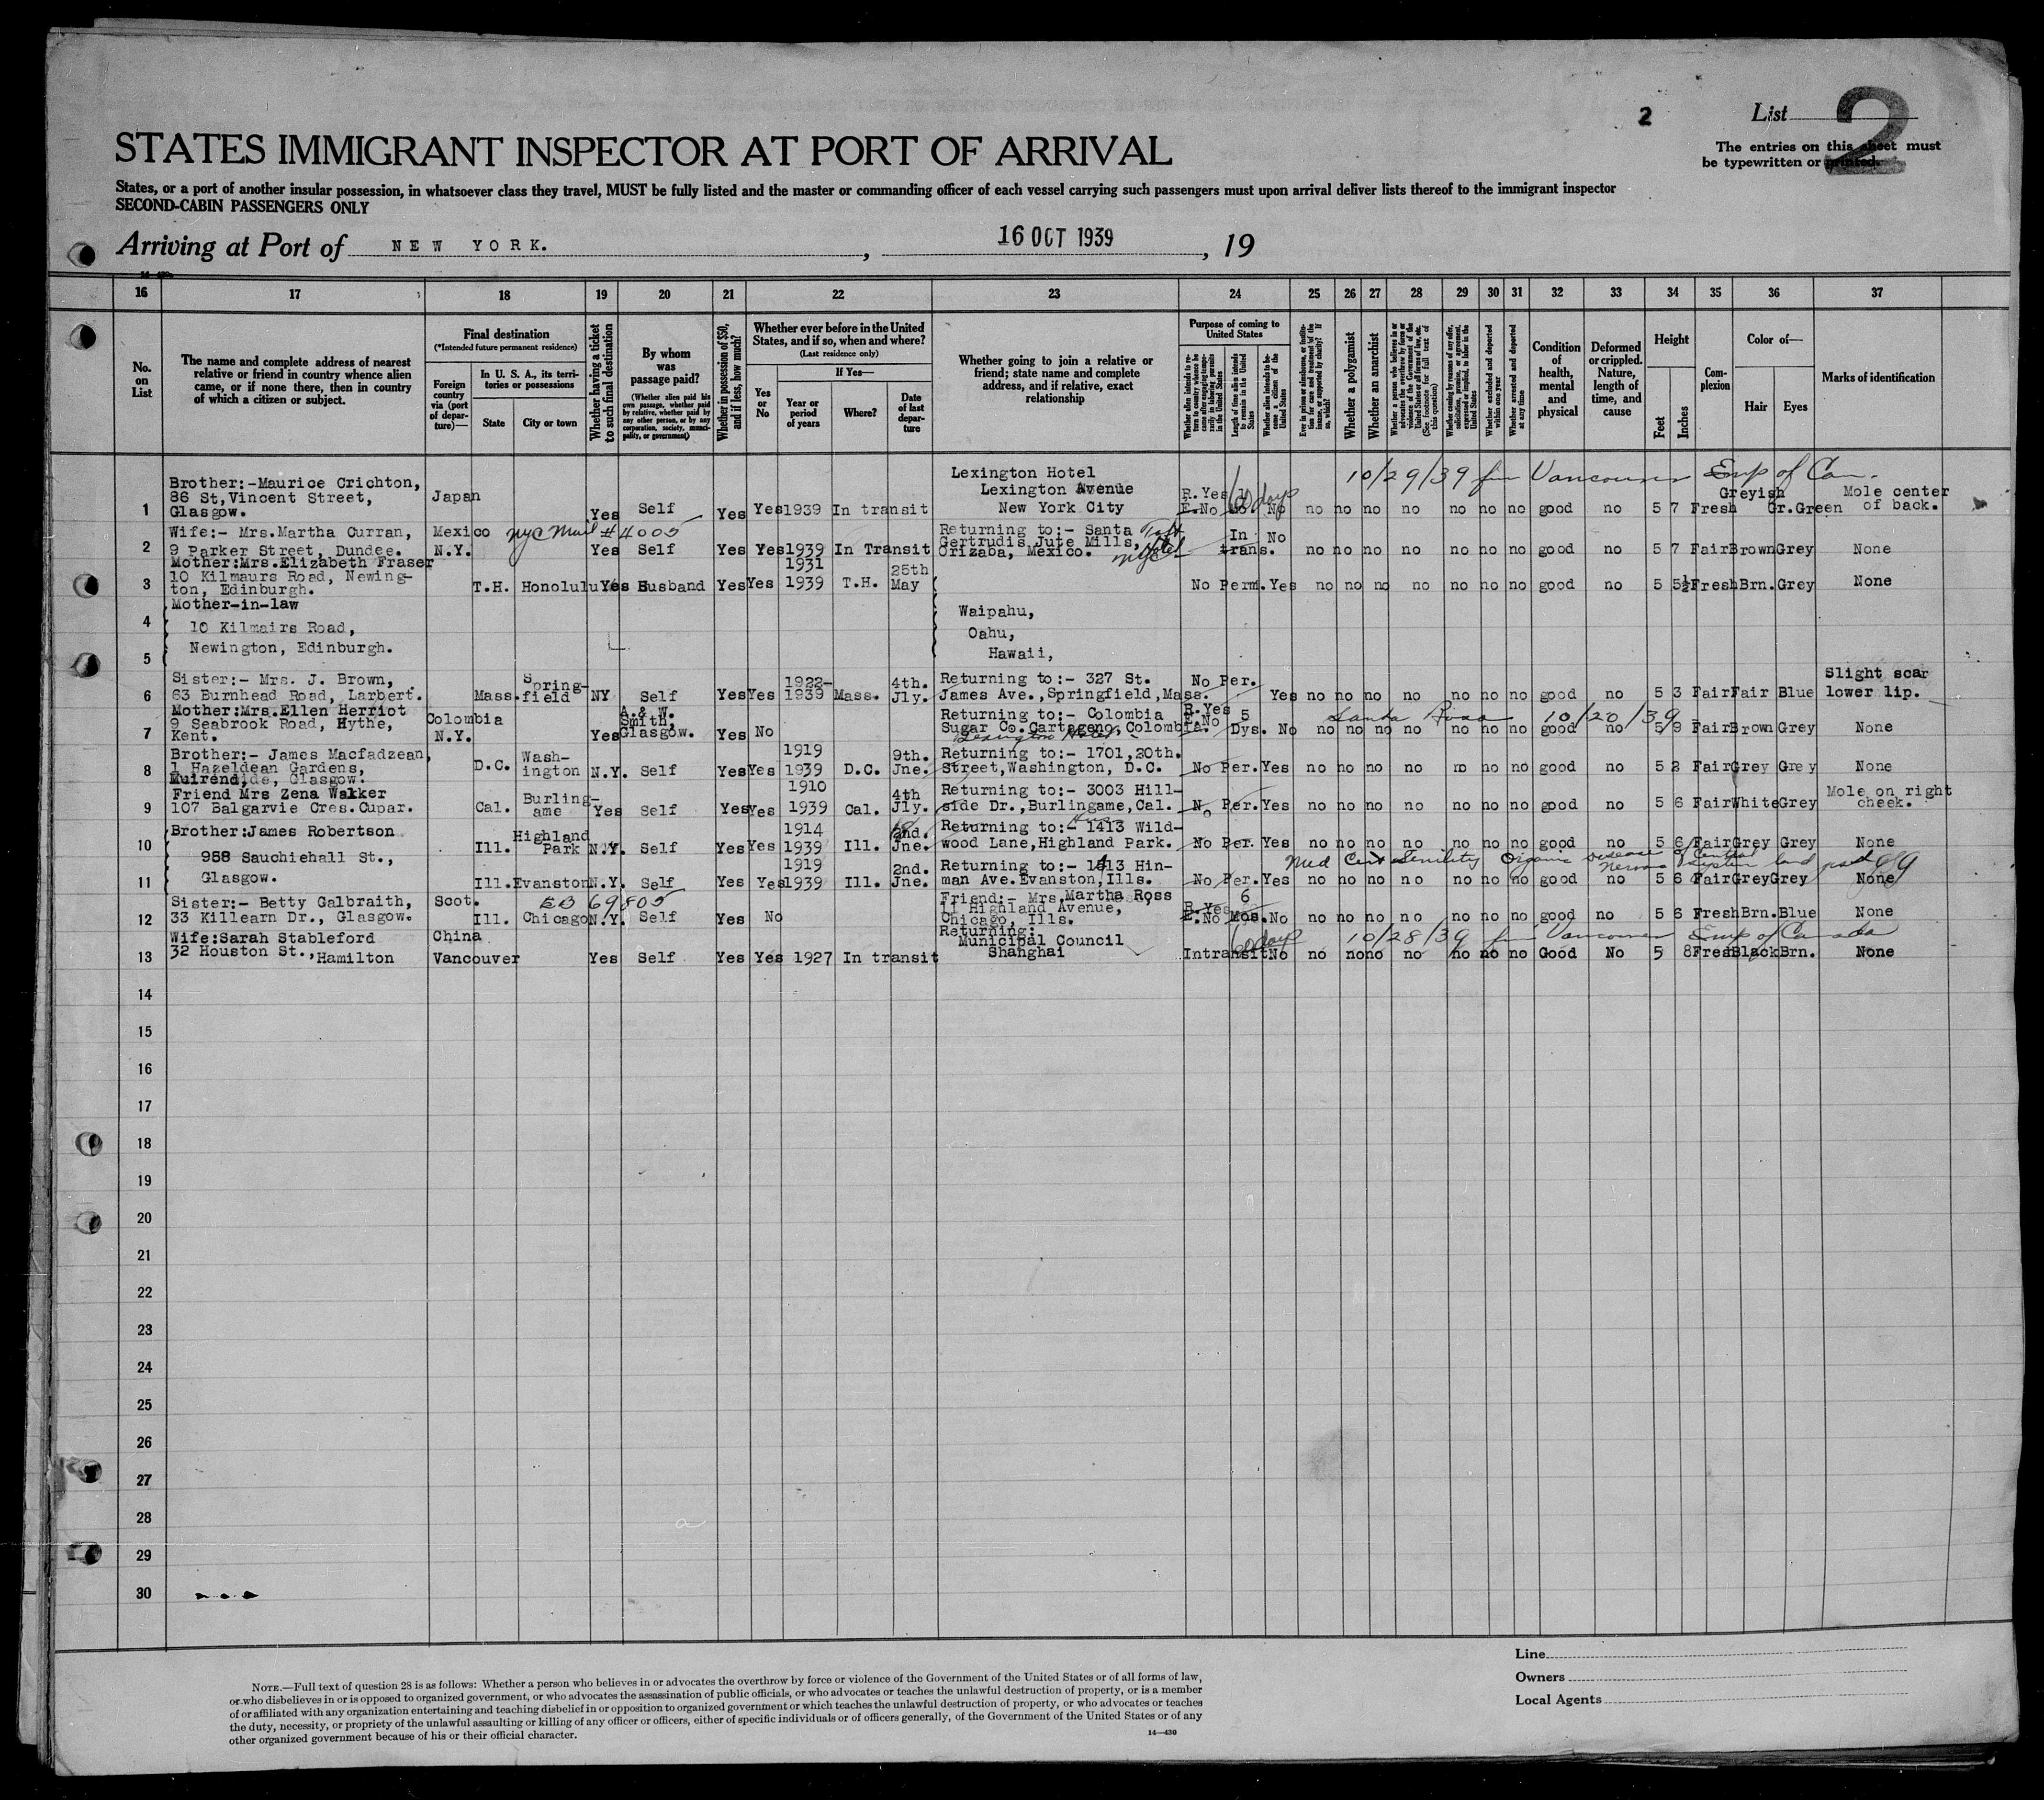 2
List
2
The entries on this sheet must
be typewritten or printed.
STATES IMMIGRANT INSPECTOR AT PORT OF ARRIVAL
States, or a port of another insular possession, in whatsoever class they travel, MUST be fully listed and the master or commanding officer of each vessel carrying such passengers must upon arrival deliver lists thereof to the immigrant inspector
SECOND-CABIN PASSENGERS ONLY
Arriving at Port of NEW YORK. , 16 OCT 1939 , 19
16 17 18 19 20 21 22 23 24 25 26 27 28 29 30 31 32 33 34 35 36 37
No. on List
The name and complete address of nearest relative or friend in country whence alien came, or if none there, then in country of which a citizen or subject.
Final destination
(*Intended future permanent residence)
Foreign country via (port of departure)—
In U. S. A., its territories or possessions
State
City or town
Whether having a ticket to such final destination
By whom was passage paid?
(Whether alien paid his own passage, whether paid by relative, whether paid by any other person, or by any corporation, society, municipality, or government)
Whether in possession of $50, and if less, how much?
Whether ever before in the United States, and if so, when and where?
(Last residence only)
Yes or No
If Yes—
Year or period of years
Where?
Date of last departure
Whether going to join a relative or friend; state name and complete address, and if relative, exact relationship
Purpose of coming to United States
Whether alien intends to return to country whence he came after engaging temporarily in laboring pursuits in the United States
Length of time alien intends to remain in the United States
Whether alien intends to become a citizen of the United States
Ever in prison or almshouse, or institution for care and treatment of the insane, or supported by charity? If so, which?
Whether a polygamist
Whether an anarchist
Whether a person who believes in or advocates the overthrow by force or violence of the Government of the United States or all forms of law, etc. (See footnote for full text of this question)
Whether coming by reason of any offer, solicitation, promise, or agreement, expressed or implied, to labor in the United States
Whether excluded and deported within one year
Whether arrested and deported at any time
Condition of health, mental and physical
Deformed or crippled. Nature, length of time, and cause
Height
Feet
Inches
Complexion
Color of—
Hair
Eyes
Marks of identification
1 Brother:-Maurice Crichton, 86 St,Vincent Street, Glasgow. Japan Yes Self Yes Yes 1939 In transit Lexington Hotel Lexington Avenue New York City R.Yes E.No 60 days No no no no no no no no good no 5 7 Fresh Greyish Gr.Green Mole center of back.
10/29/39 fm Vancouver Emp of Can.
2 Wife:- Mrs.Martha Curran, 9 Parker Street, Dundee. Mexico N.Y. nyc Mail #4005 Yes Self Yes Yes 1939 In Transit Returning to:- Santa Gertrudis Jute Mills, Orizaba, Mexico. Taft Hotel nyc In trans. No no no no no no no no good no 5 7 Fair Brown Grey None
3 Mother:Mrs.Elizabeth Fraser 10 Kilmaurs Road, Newington, Edinburgh. T.H. Honolulu Yes Husband Yes Yes 1931 1939 T.H. 25th May No Perm. Yes no no no no no no no good no 5 5½ Fresh Brn. Grey None
4 Mother-in-law
10 Kilmairs Road,
5 Newington, Edinburgh.
Waipahu,
Oahu,
Hawaii,
6 Sister:- Mrs. J. Brown, 63 Burnhead Road, Larbert. Mass. Springfield NY Self Yes Yes 1922-1939 Mass. 4th. Jly. Returning to:- 327 St. James Ave.,Springfield,Mass. No Per. Yes no no no no no no no good no 5 3 Fair Fair Blue Slight scar lower lip.
7 Mother:Mrs.Ellen Herriot 9 Seabrook Road, Hythe, Kent. Colombia N.Y. Yes A.& W. Smith, Glasgow. Yes No Returning to:- Colombia Sugar Co.Cartageno,Colombia. Lexington Hotel R.Yes No 5 Dys. No no no no no no no no good no 5 9 Fair Brown Grey None
Santa Rosa 10/20/39
8 Brother:- James Macfadzean, 1 Hazeldean Gardens, Muirendide, Glasgow. D.C. Washington N.Y. Self Yes Yes 1919 1939 D.C. 9th. Jne. Returning to:- 1701,20th. Street,Washington, D.C. No Per. Yes no no no no no no no good no 5 2 Fair Grey Grey None
9 Friend Mrs Zena Walker 107 Balgarvie Cres.Cupar. Cal. Burlingame Yes Self Yes Yes 1910 1939 Cal. 4th Jly. Returning to:- 3003 Hillside Dr.,Burlingame,Cal. No Per. Yes no no no no no no no good no 5 6 Fair White Grey Mole on right cheek.
10 Brother:James Robertson Ill. Highland Park N.Y. Self Yes Yes 1914 1939 Ill. 2nd. Jne. Returning to:- 1413 Wildwood Lane,Highland Park. No Per. Yes no no no no no no no good no 5 6 Fair Grey Grey None
958 Sauchiehall St.,
Med Cert Senility Organic Disease of Central Nervous System
11 Glasgow. Ill. Evanston N.Y. Self Yes Yes 1919 1939 Ill. 2nd. Jne. Returning to:- 1513 Hinman Ave.Evanston,Ills. No Per. Yes no no no no no no no good no 5 6 Fair Grey Grey None
12 Sister:- Betty Galbraith, 33 Killearn Dr., Glasgow. Scot. EB 69805 Ill. Chicago N.Y. Self Yes No Friend:- Mrs.Martha Ross, 11 Highland Avenue, Chicago, Ills. R.Yes E.No 6 Mos. No no no no no no no no good no 5 6 Fresh Brn. Blue None
13 Wife:Sarah Stableford 32 Houston St.,Hamilton China Vancouver Yes Self Yes Yes 1927 In transit Returning: Municipal Council Shanghai Intransit 60 days No no no no no no no no Good No 5 8 Fresh Black Brn. None
10/28/39 fm Vancouver Emp of Canada
14
15
16
17
18
19
20
21
22
23
24
25
26
27
28
29
30
Line
Owners
Local Agents
NOTE.—Full text of question 28 is as follows: Whether a person who believes in or advocates the overthrow by force or violence of the Government of the United States or of all forms of law,
or who disbelieves in or is opposed to organized government, or who advocates the assassination of public officials, or who advocates or teaches the unlawful destruction of property, or is a member
of or affiliated with any organization entertaining and teaching disbelief in or opposition to organized government or which teaches the unlawful destruction of property, or who advocates or teaches
the duty, necessity, or propriety of the unlawful assaulting or killing of any officer or officers, either of specific individuals or of officers generally, of the Government of the United States or of any
other organized government because of his or their official character.
14—430